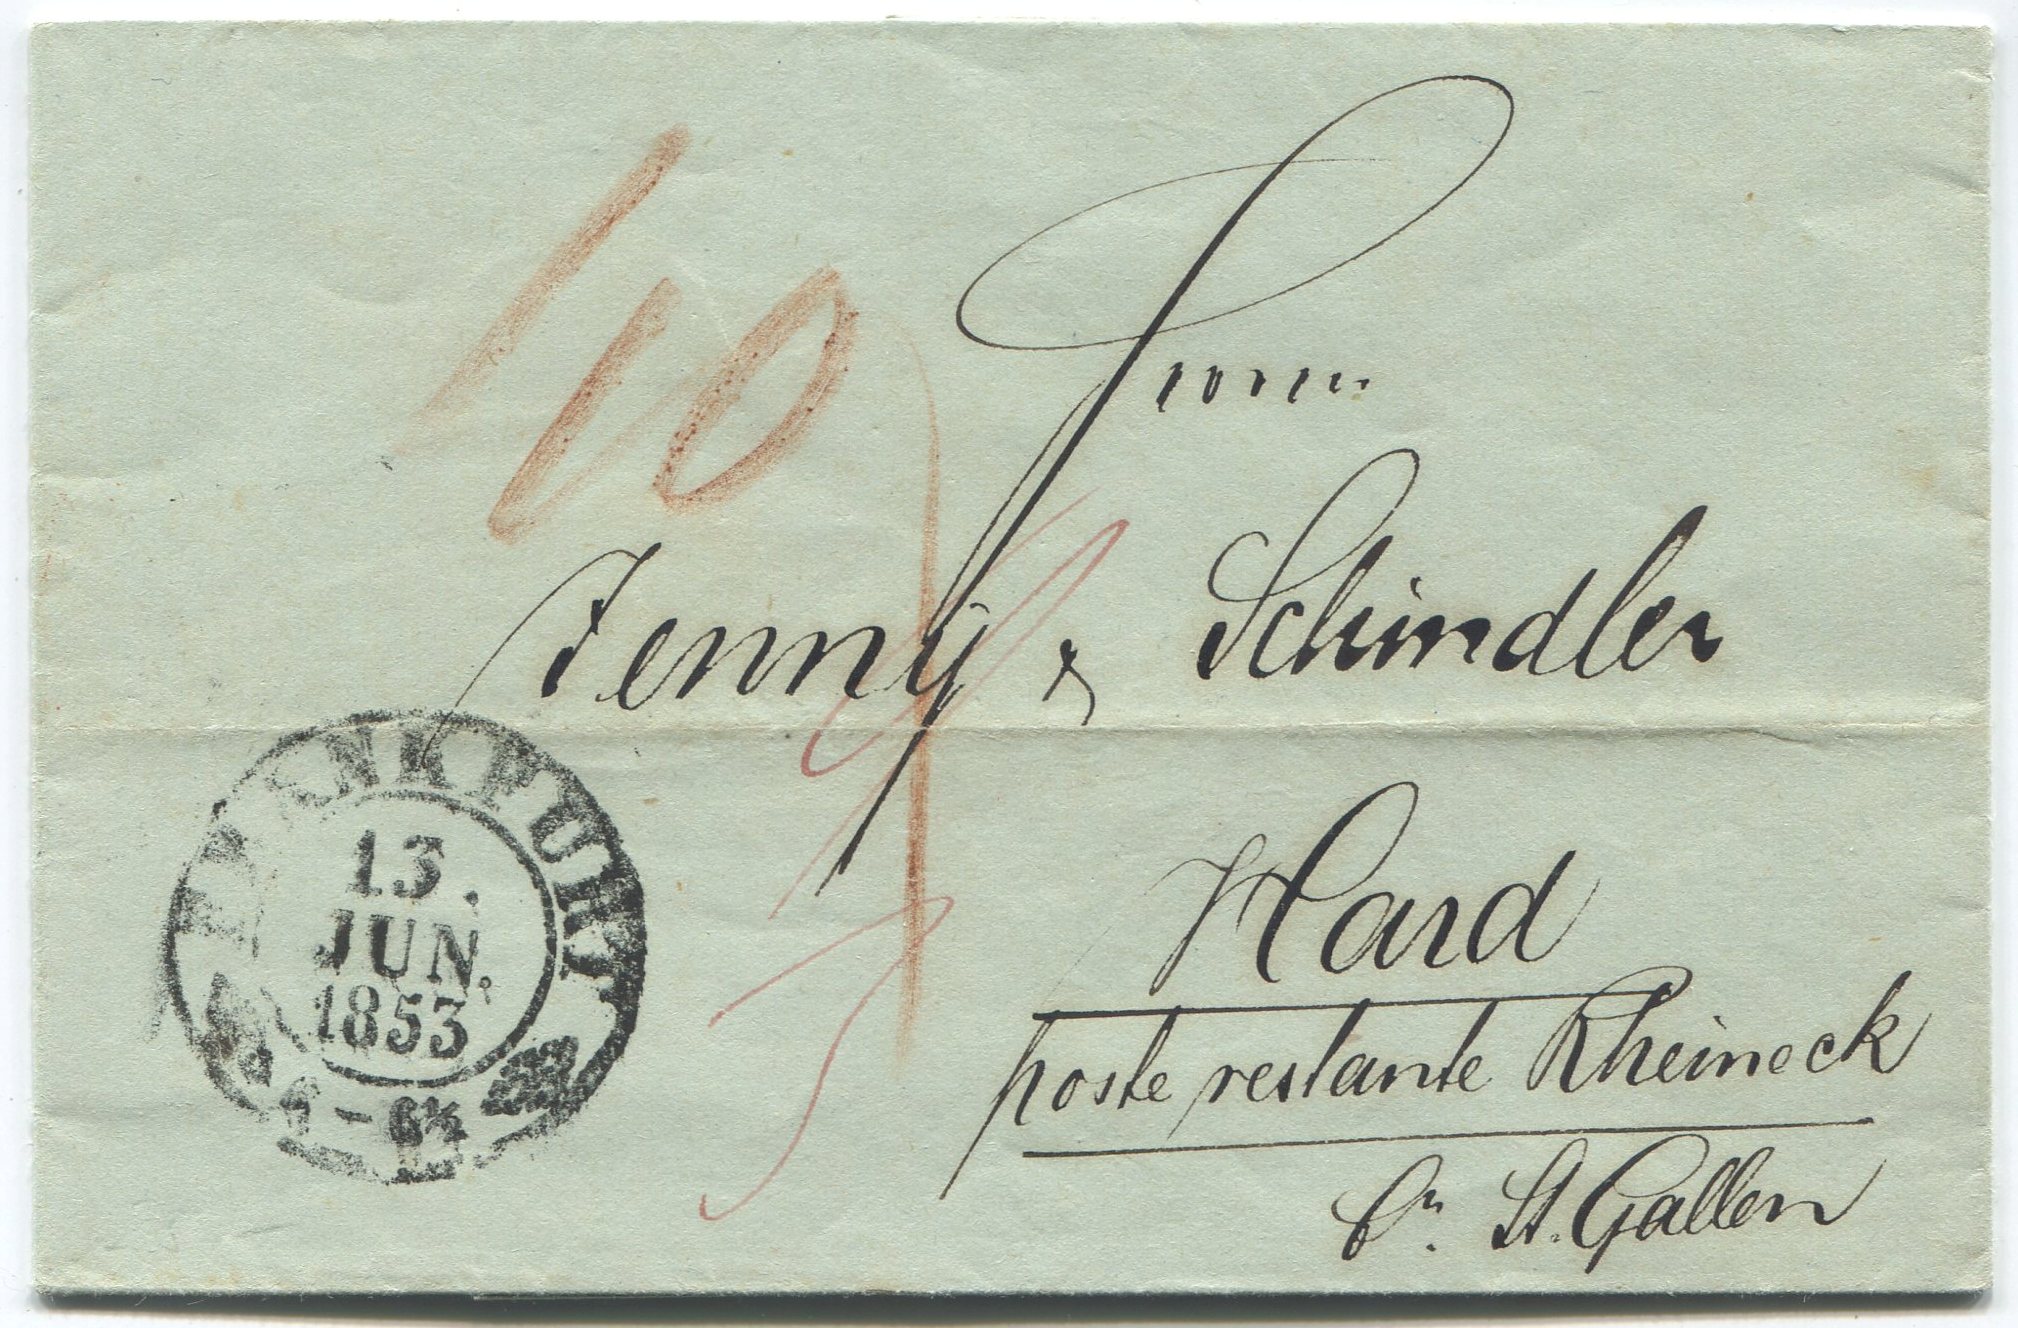 10
Herren
Jenny & Schindler
Hard
poste restante Rheineck
Cn. St. Gallen
FRANKFURT
13.
JUN.
1853